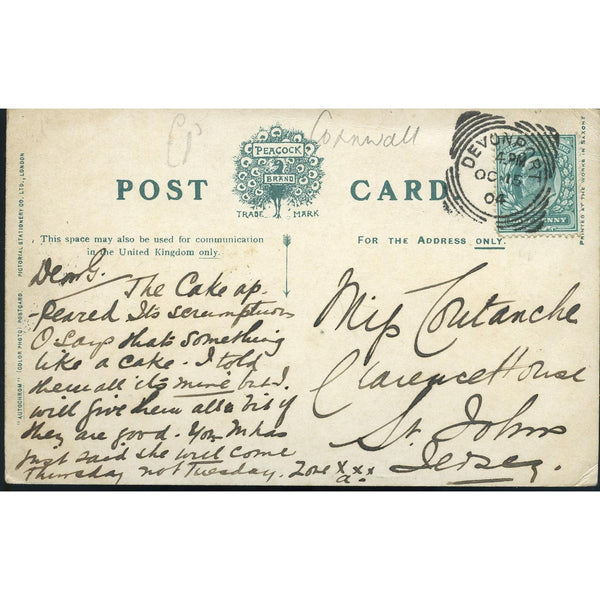 Cornwall
PEACOCK
BRAND
TRADE MARK
POST CARD
DEVONPORT
4.PM
OC 15
04
PRINTED AT THE WORKS IN SAXONY
"AUTOCHROM" (COLOR PHOTO) POSTCARD. PICTORIAL STATIONERY CO. LTD., LONDON
This space may also be used for communication
in the United Kingdom only.
Dear G.
The Cake ap-
-peared Its scrumption
O says thats something
like a cake. I told
them all its mine but I
will give them all a bit if
they are good. Your M has
just said she will come
Thursday not Tuesday. xxx
FOR THE ADDRESS ONLY.
Miss Coutanche
Clarence House
St. Johns
Jersey.